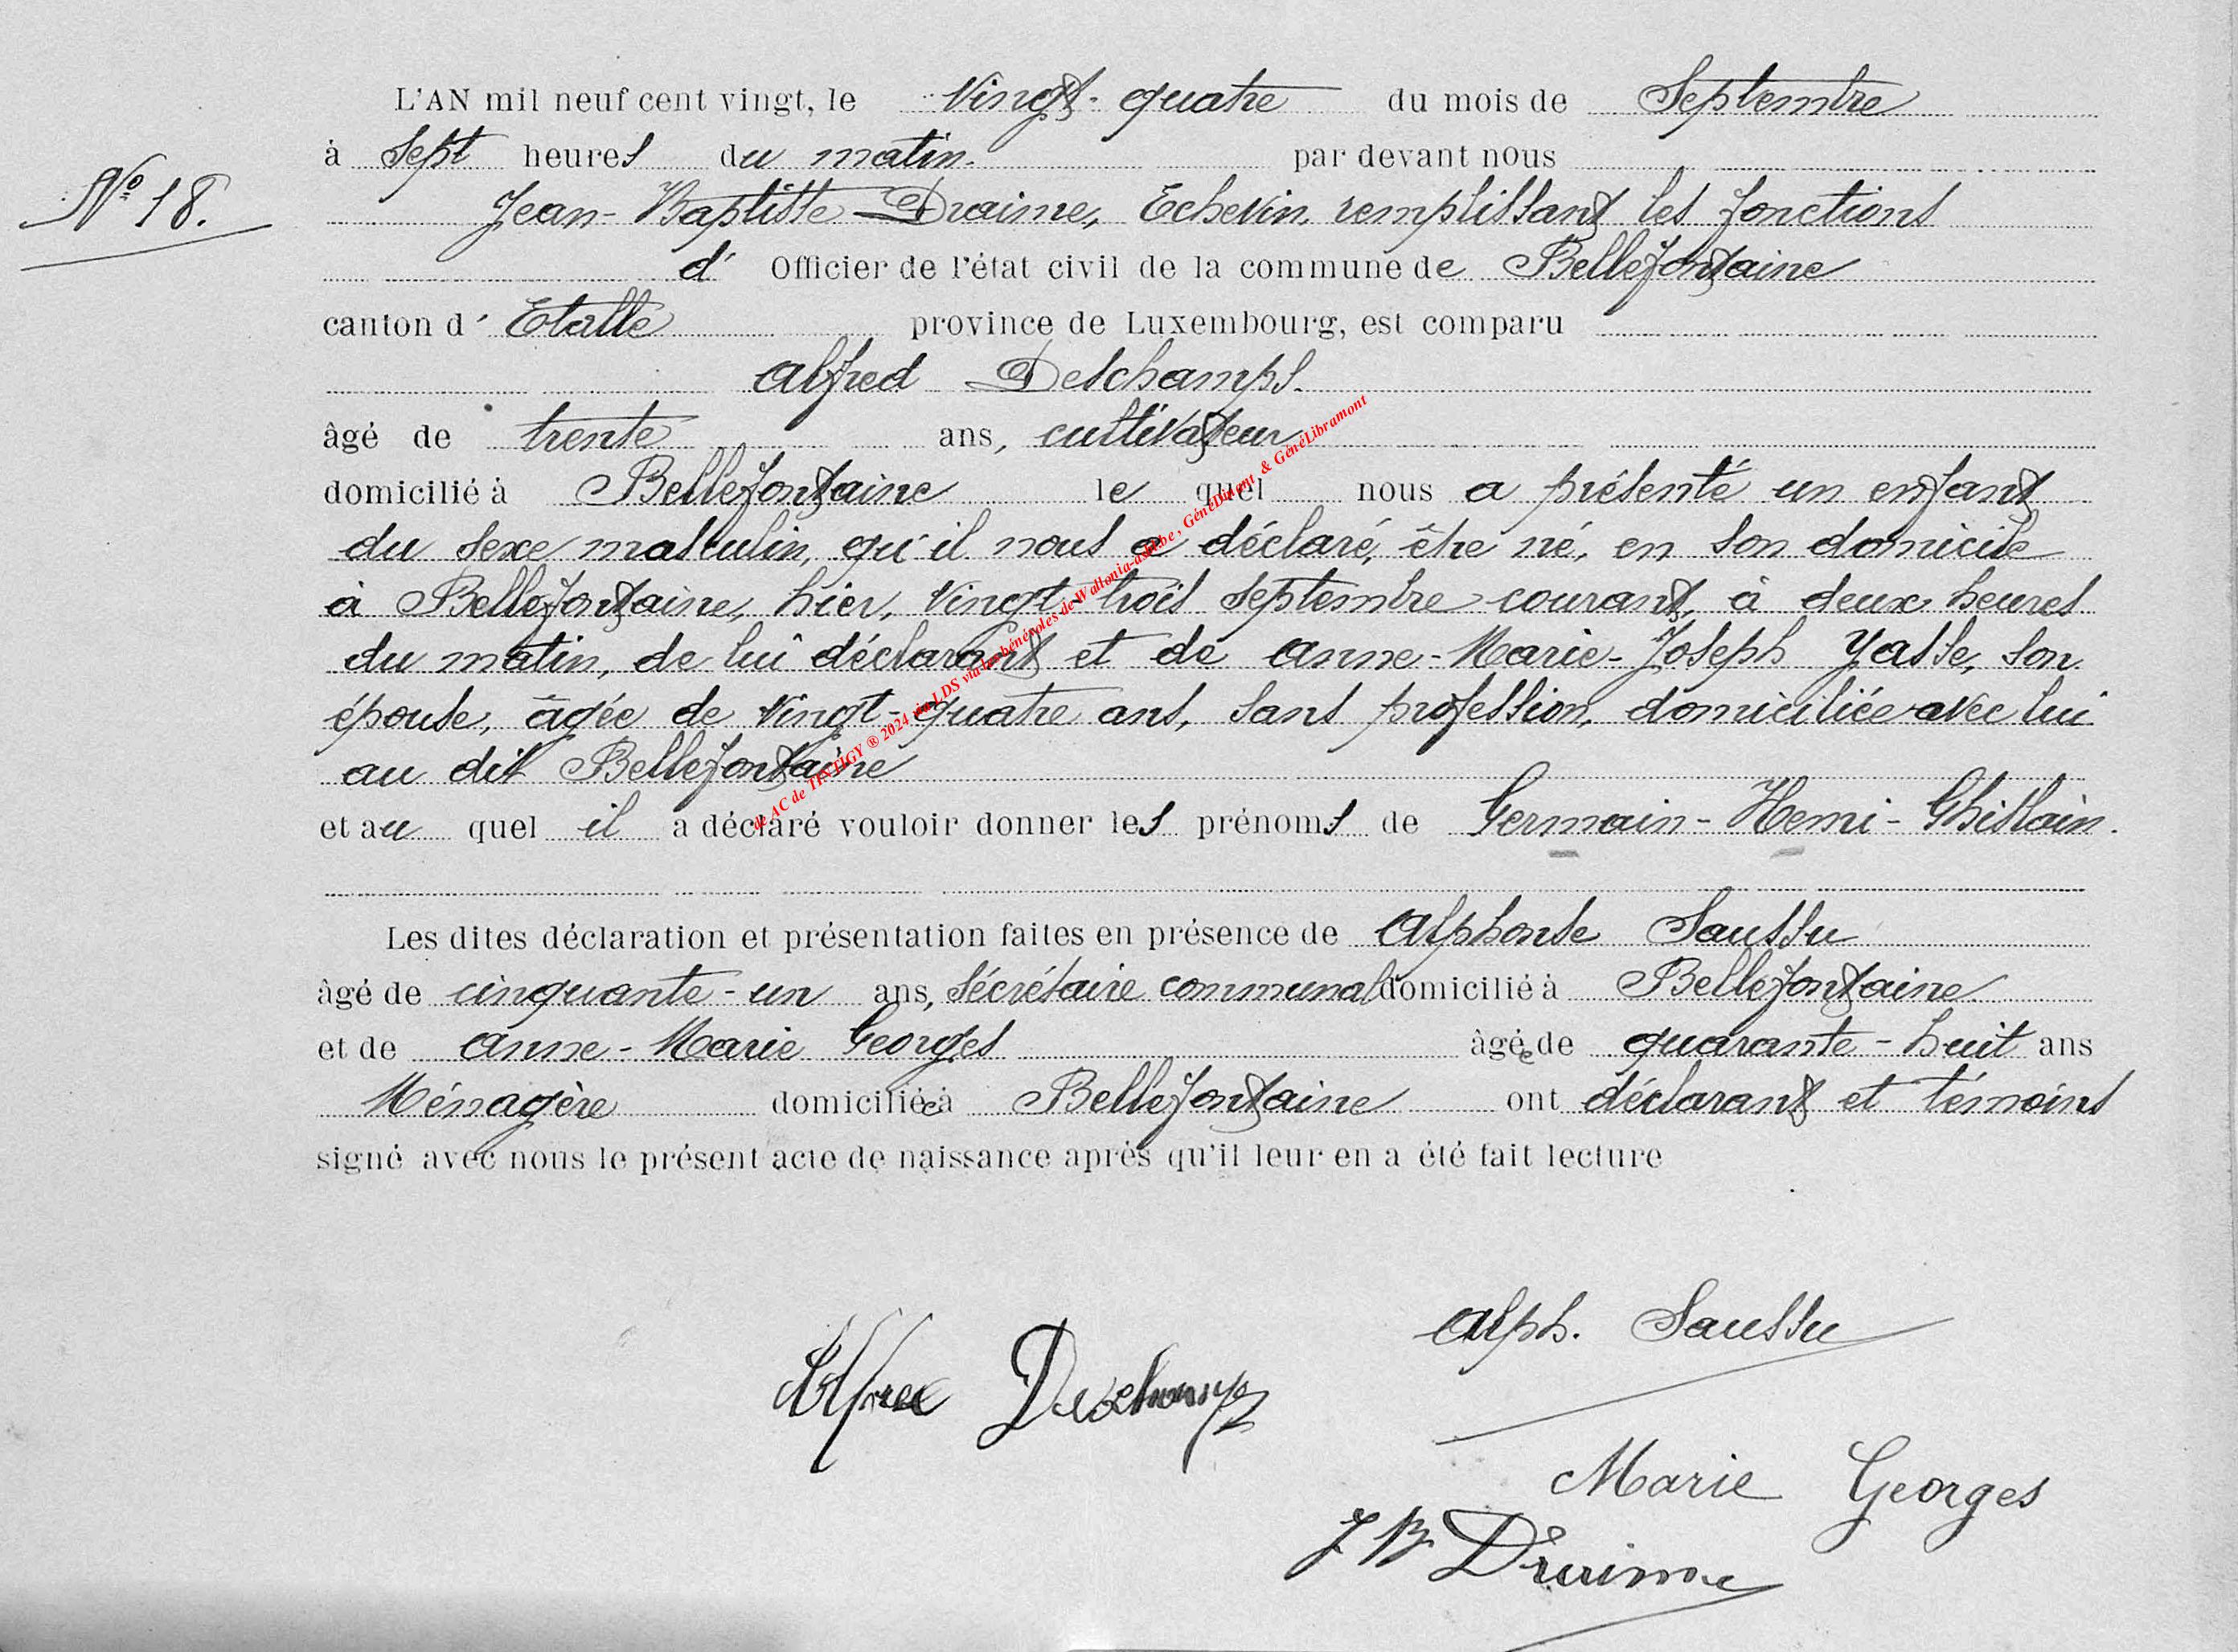 L'AN mil neuf cent vingt, le Vingt-quatre du mois de Septembre
à Sept heures du matin. par devant nous
N° 18.
Jean-Baptiste Draime, Echevin, remplissant les fonctions
d' Officier de l'état civil de la commune de Bellefontaine
canton d' Etalle province de Luxembourg, est comparu
Alfred Deschamps.
âgé de trente ans, cultivateur
domicilié à Bellefontaine le quel nous a présenté un enfant
du sexe masculin, qu'il nous a déclaré, être né, en son domicile
à Bellefontaine, hier, vingt-trois septembre courant, à deux heures
du matin, de lui déclarant et de Anne-Marie-Joseph Yasse, son
épouse, âgée de vingt-quatre ans, sans profession, domiciliée avec lui
au dit Bellefontaine
et au quel il a déclaré vouloir donner les prénoms de Germain-Henri-Ghislain.
Les dites déclaration et présentation faites en présence de Alphonse Saussu
âgé de cinquante-un ans, sécrétaire communal domicilié à Bellefontaine
et de Anne-Marie Georges âgée de quarante-huit ans
Ménagère domiciliée à Bellefontaine ont déclarant et témoins
signé avec nous le présent acte de naissance après qu'il leur en a été fait lecture
Alph. Saussu
Alfred Deschamps
Marie Georges
J B Draime
de AC de TINTIGY ® 2024 via LDS via les bénévoles de Wallonia-asbl.be, GénéDinant & GénéLibramont